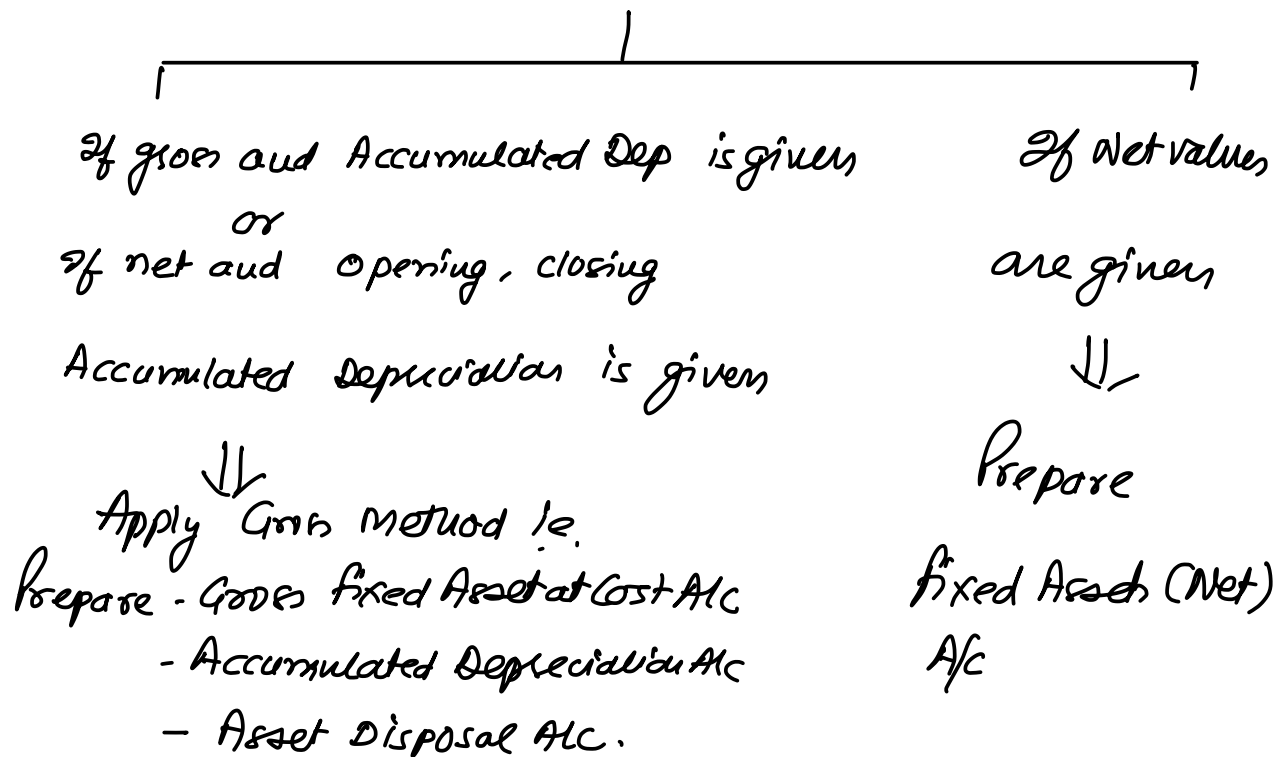 If gross and Accumulated Dep is given
or
If net and opening, closing
Accumulated Depreciation is given
Apply Gross Method ie.
Prepare - Gross fixed Asset at Cost A/c
- Accumulated Depreciation A/c
- Asset Disposal A/c.
If Net values
are given
Prepare
fixed Assets (Net)
A/c